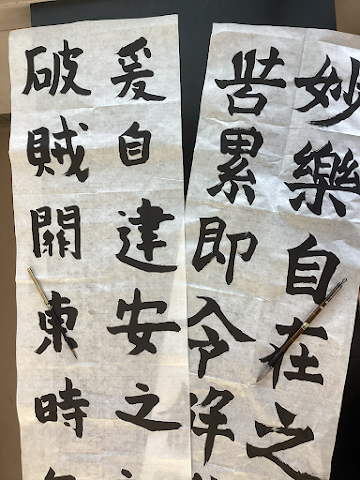 妙樂自在之
苦累即令
爰自建安之
破賊關東時